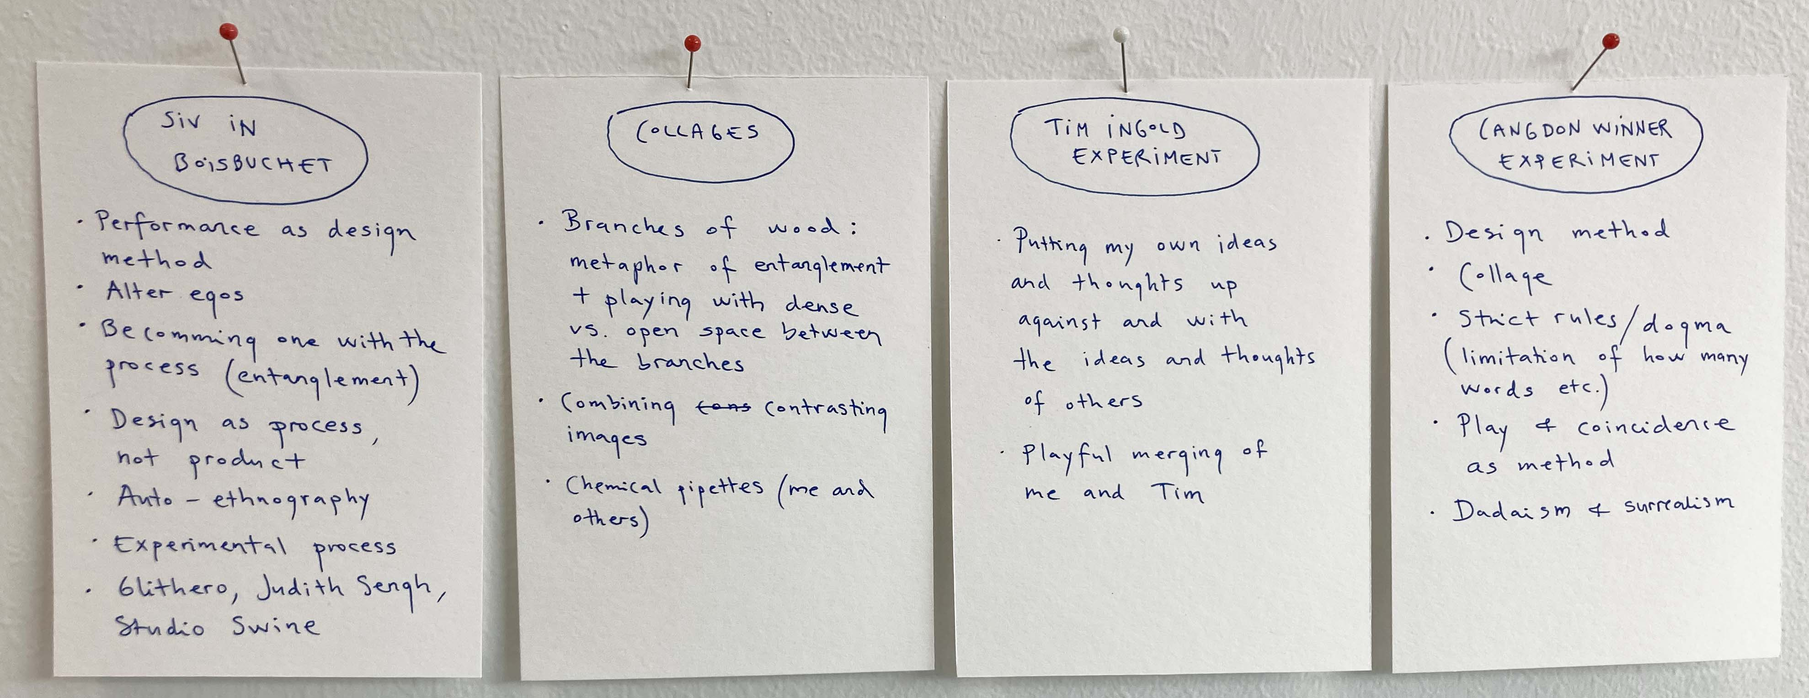 SiV iN
BOiSBUCHET
· Performance as design
method
· Alter egos
· Becomming one with the
process (entanglement)
· Design as process,
not product
· Auto - ethnography
· Experimental process
· Glithero, Judith Sengh,
Studio Swine
COLLAGES
· Branches of wood:
metaphor of entanglement
+ playing with dense
vs. open space between
the branches
· Combining cons contrasting
images
· Chemical pipettes (me and
others)
TiM iNGOLD
EXPERiMENT
· Putting my own ideas
and thoughts up
against and with
the ideas and thoughts
of others
· Playful merging of
me and Tim
LANGDON WiNNER
EXPERiMENT
· Design method
· Collage
· Strict rules/dogma
(limitation of how many
words etc.)
· Play & coincidence
as method
· Dadaism & surrealism